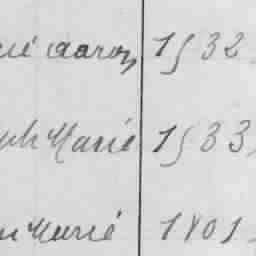 rié Aaron 1532
ph Marie 1533
n Marié 1801